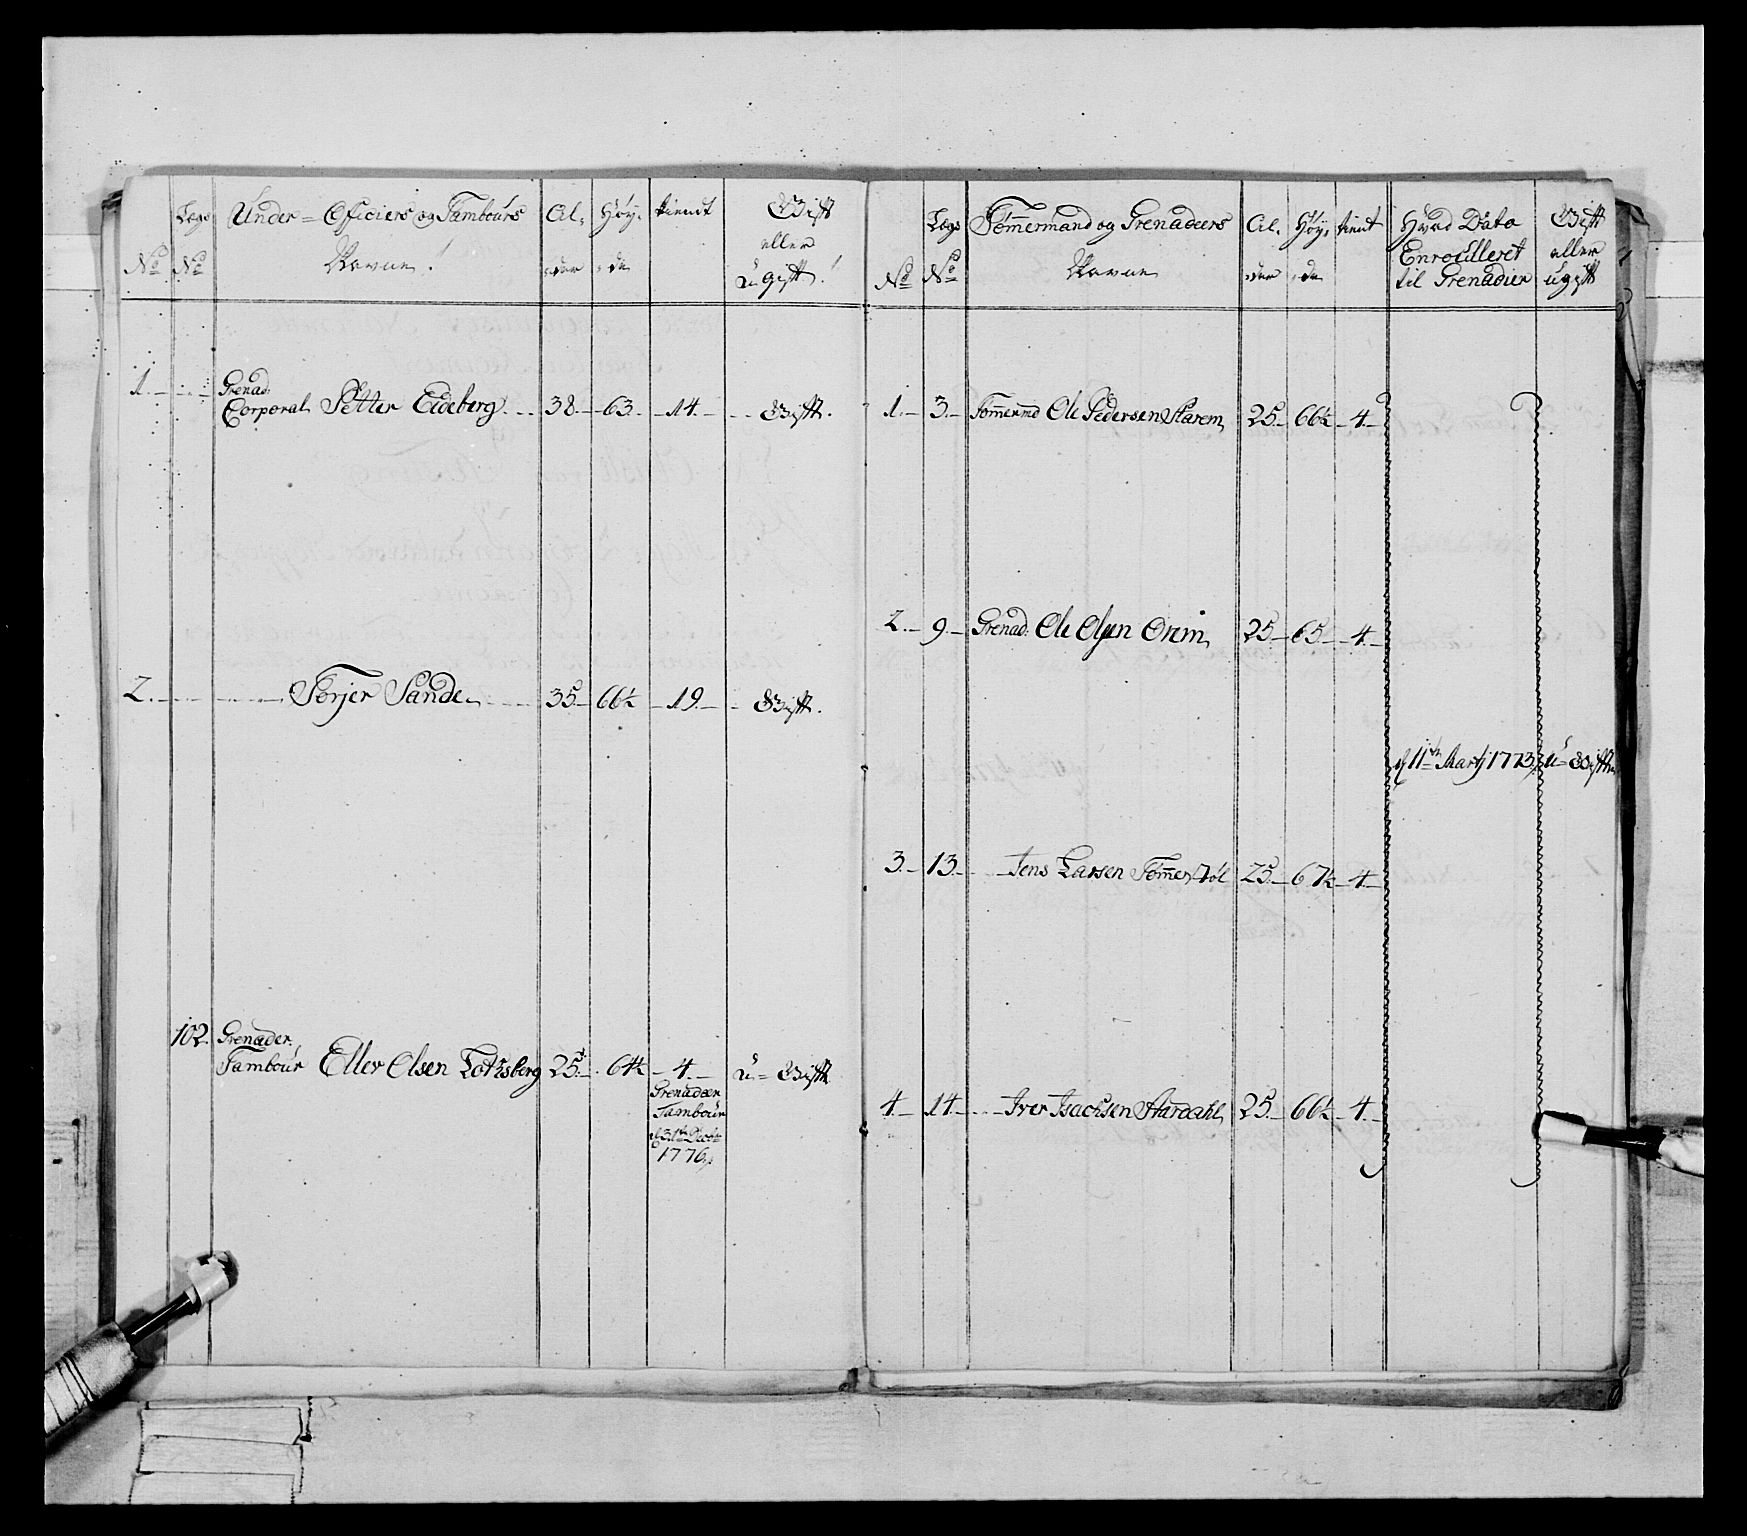 No Lægs No Under=Officiers og Tambours Navne! Al,, der Høy,, de tient Gift eller u-Gift!
1. Grenad: Corporal Petter Eideberg 38. 63. 14. Gift.
2. Torjer Sande 35 66½ 19. Gift.
102. Grenader Tambour Eller Olsen 25. 64½ 4. u=Gift
Grenadeer
Tambour
d 31te Decbr
1776.
No Lægs No Tømmermand og Grenadeers Navne Al,, der Høy,, de tient Hvad Dato Enroulleret til Grenadier Gift eller ugift
1. 3. Tømermd Ole Pedersen Starem 25. 66½ 4.
2. 9. Grenad: Ole Olsen Orem 25 65 4.
d 11te Marty 1773. u=Gifte
3. 13. Jens Larsen 25. 67½ 4.
4 14 Iver Isachsen Aardahl 25. 66½ 4.